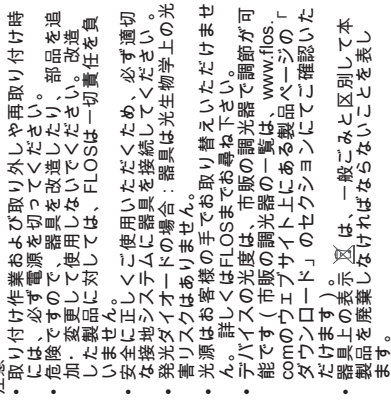 注意
• 取り付け作業および取り外しや再取り付け時
には、必ず電源を切ってください。
• 危険ですので、器具を改造したり、部品を追
加・変更して使用しないでください。改造
した製品に対しては、FLOSは一切責任を負
いません。
• 安全に正しくご使用いただくため、必ず適切
な接地システムに器具を接続してください。
• 発光ダイオードの場合：器具は光生物学上の光
害リスクはありません。
• 光源はお客様の手でお取り替えいただけませ
ん。詳しくはFLOSまでお尋ね下さい。
• デバイスの光度は、市販の調光器で調節が可
能です（市販の調光器の一覧は、www.flos.
comのウェブサイト上にある製品ページの「
ダウンロード」のセクションにてご確認いた
だけます）。
• 器具上の表示 は、一般ごみと区別して本
製品を廃棄しなければならないことを表し
ます。